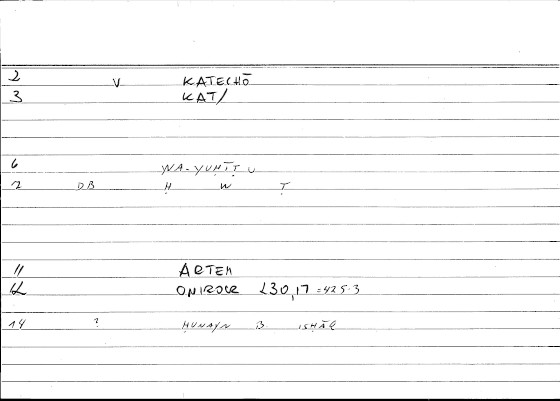 2 V KATECHŌ
3 KAT/
6 WA-YUḤĪṬU
7 DB Ḥ W Ṭ
11 ARTEM
12 ONIROCR 230,17 =425.3
14 ? ḤUNAYN B. ISḤĀQ